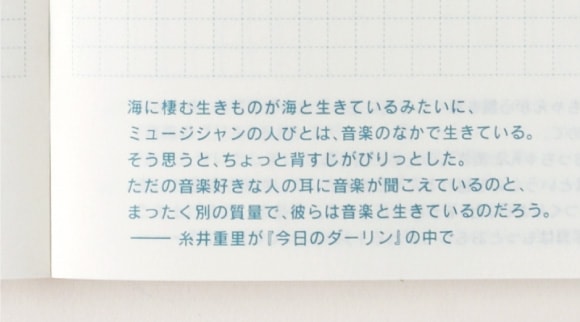 海に棲む生きものが海と生きているみたいに、
ミュージシャンの人びとは、音楽のなかで生きている。
そう思うと、ちょっと背すじがぴりっとした。
ただの音楽好きな人の耳に音楽が聞こえているのと、
まったく別の質量で、彼らは音楽と生きているのだろう。
―― 糸井重里が『今日のダーリン』の中で